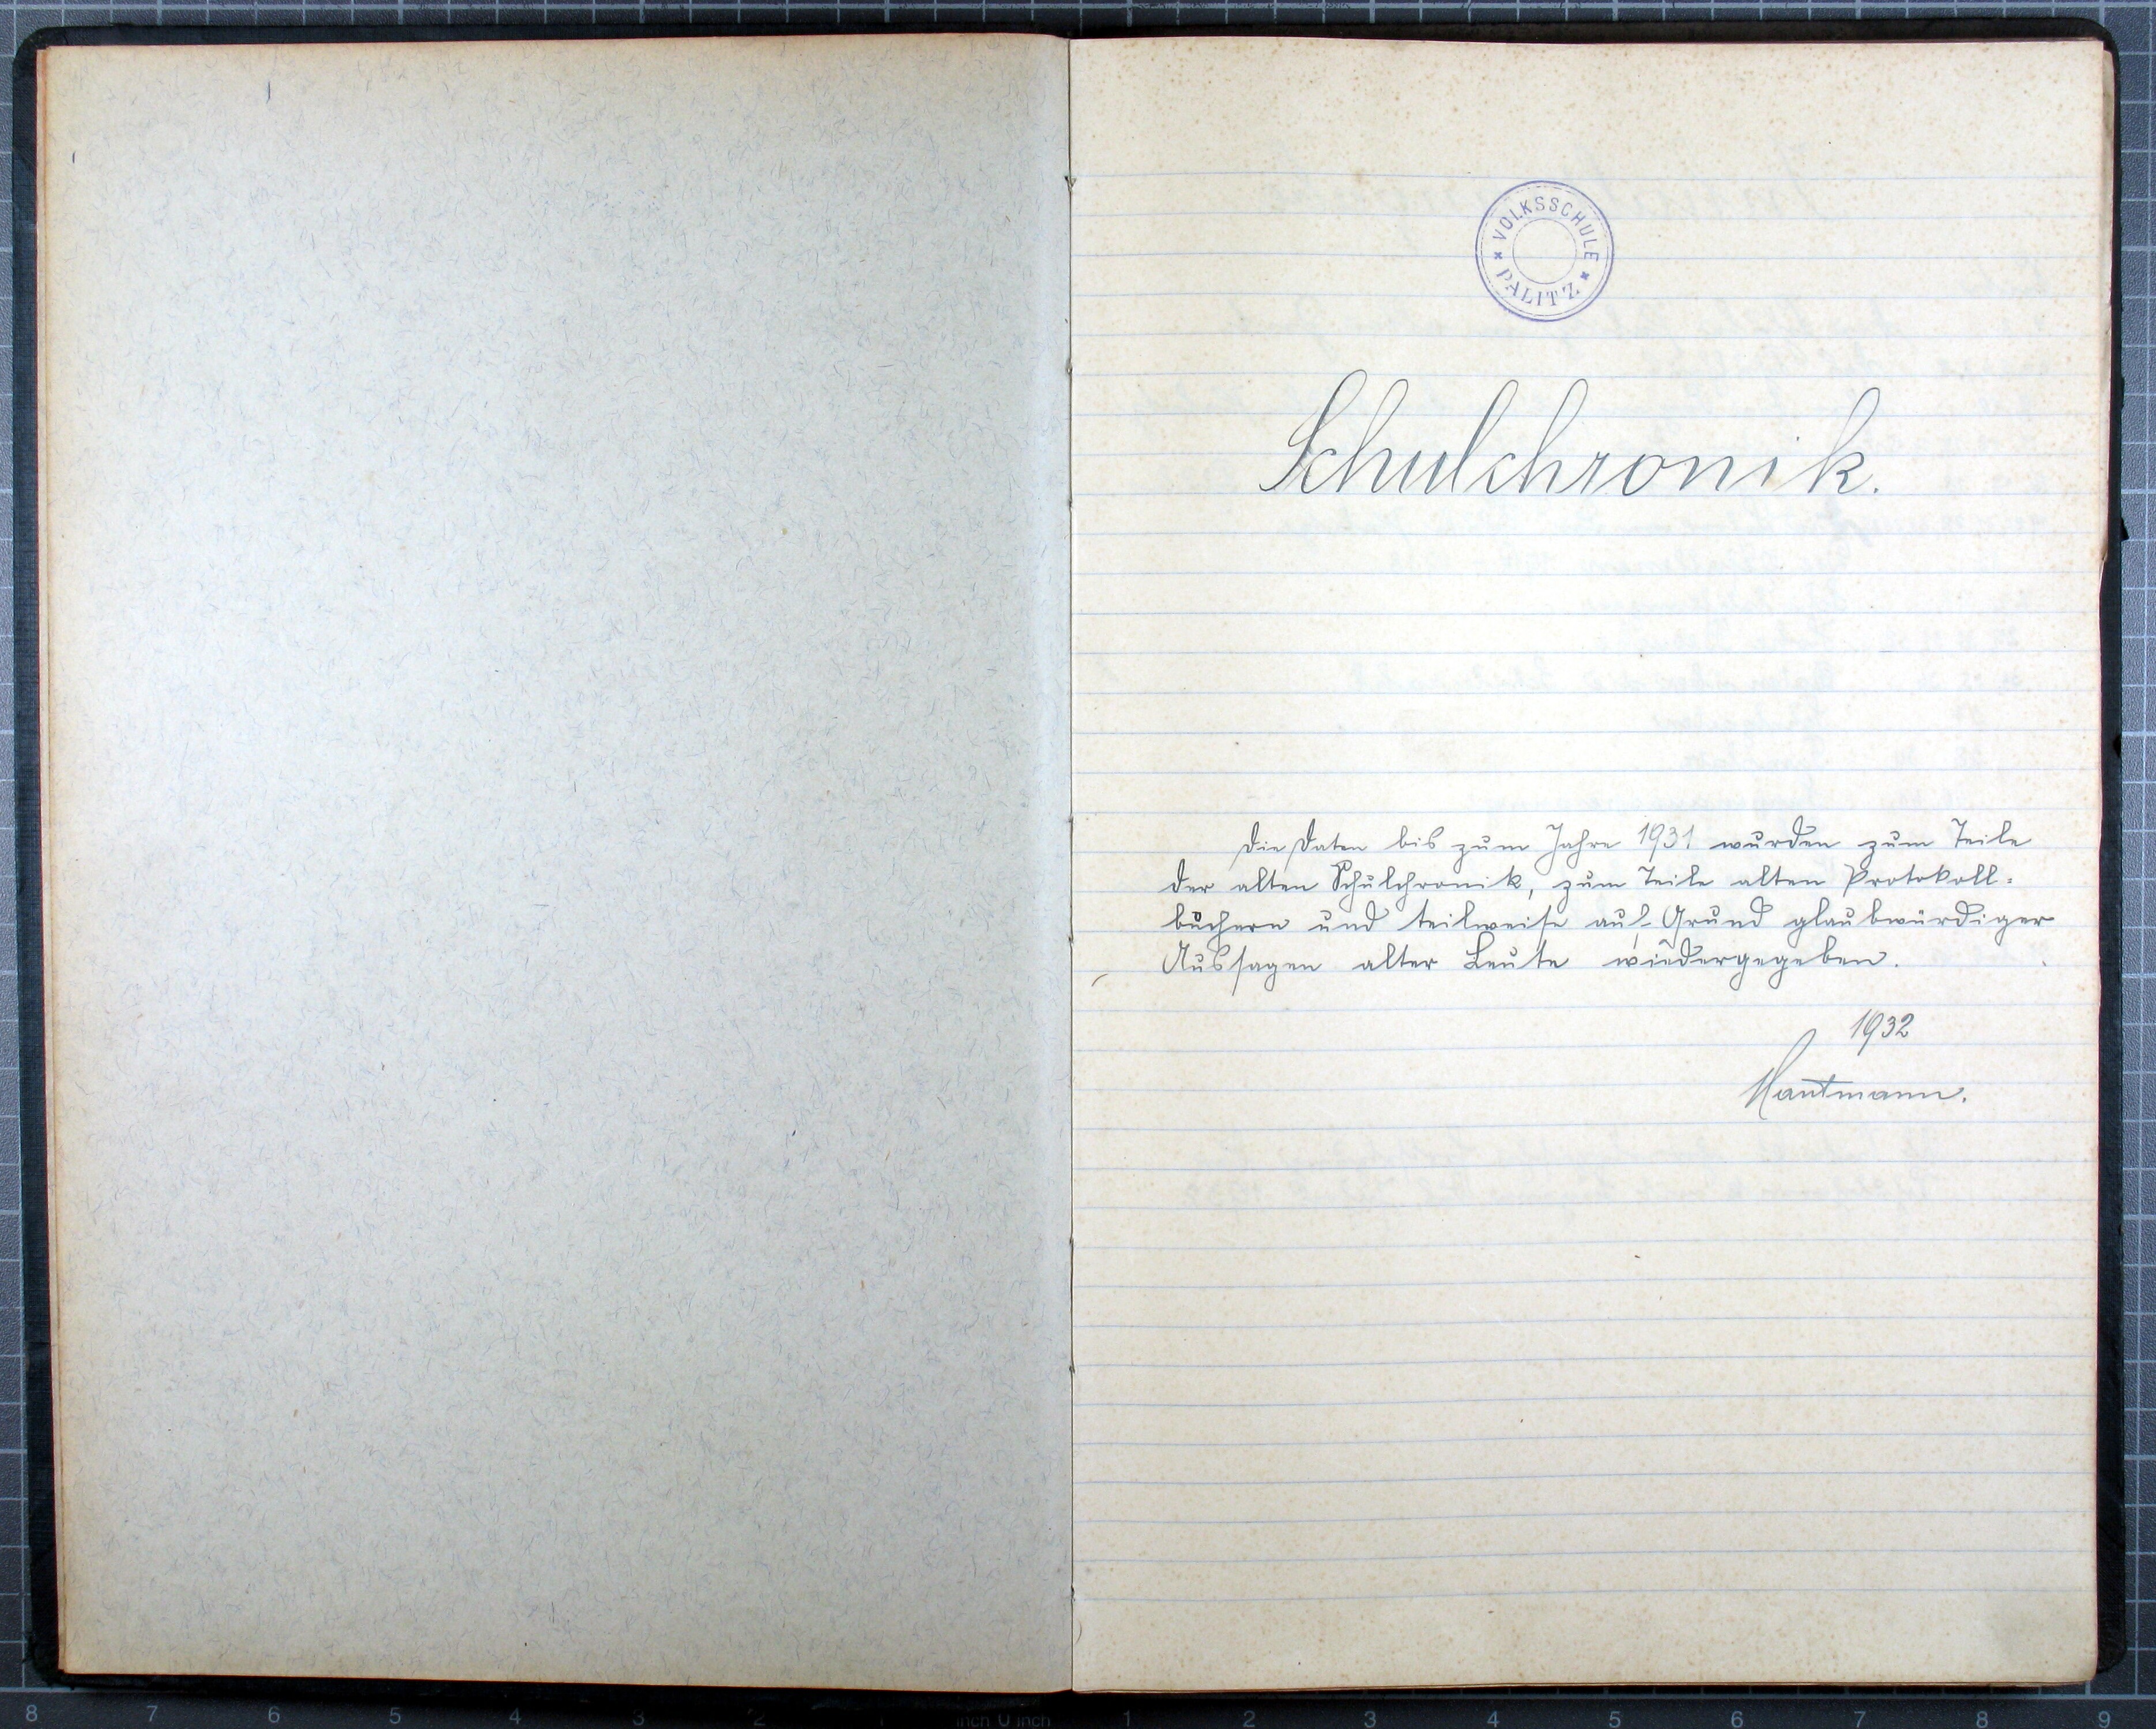 VOLKSSCHULE
PALITZ
Schulchronik.
Die Daten bis zum Jahre 1931 wurden zum Teile
der alten Schulchronik, zum Teile alten Protokoll-
büchern und teilweise auf Grund glaubwürdiger
Aussagen alter Leute wiedergegeben.
1932
Hautmann.
8 7 6 5 4 3 2 1 inch 0 inch 1 2 3 4 5 6 7 8 9